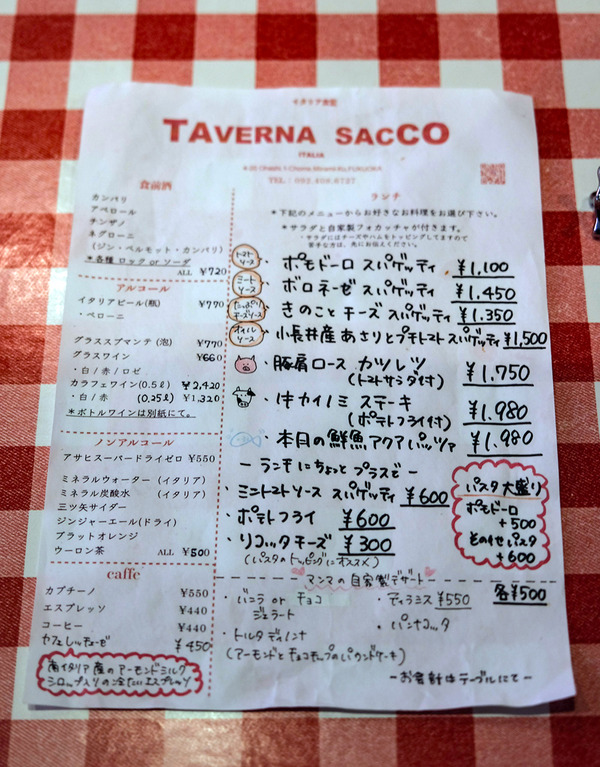 イタリア食堂
TAVERNA SACCO
ITALIA
TEL : 092.409.6737
食前酒
カンパリ
アペロール
チンザノ
ネグローニ
(ジン・ベルモット・カンパリ)
*各種 ロック or ソーダ
ALL ¥720
アルコール
イタリアビール(瓶) ¥770
・ペローニ
グラススプマンテ (泡) ¥770
グラスワイン ¥660
・白 / 赤 / ロゼ
カラフェワイン(0.5ℓ) ¥2,420
・白 / 赤 (0.25ℓ) ¥1,320
*ボトルワインは別紙にて。
ノンアルコール
アサヒスーパードライゼロ ¥550
ミネラルウォーター (イタリア)
ミネラル炭酸水 (イタリア)
三ツ矢サイダー
ジンジャーエール(ドライ)
ブラットオレンジ
ウーロン茶 ALL ¥500
caffe
カプチーノ ¥550
エスプレッソ ¥440
コーヒー ¥440
カフェレッチェーゼ ¥450
南イタリア産のアーモンドミルク
シロップ入りの冷たいエスプレッソ
ランチ
*下記のメニューからお好きなお料理をお選び下さい。
*サラダと自家製フォカッチャが付きます。
・サラダにはチーズやハムをトッピングしてますので
苦手な方は、先にお伝えください。
トマトソース ・ポモドーロ スパゲッティ ¥1,100
ミートソース ・ボロネーゼ スパゲッティ ¥1.450
たっぷりチーズソース ・きのことチーズ スパゲッティ ¥1.350
オイルソース ・小長井産あさりとプチトマト スパゲッティ ¥1,500
・豚肩ロース カツレツ ¥1.750
(トマトサラダ付)
・牛カイノミ ステーキ ¥1.980
(ポテトフライ付)
・本日の鮮魚 アクアパッツァ ¥1.980
ー ランチにちょっと プラスで ー
・ミニトマトソース スパゲッティ ¥600
・ポテトフライ ¥600
・リコッタチーズ ¥300
(パスタのトッピングにオススメ)
パスタ大盛り
ポモドーロ
+500
その他パスタ
+600
マンマの自家製デザート
各¥500
・バニラ or チョコ
ジェラート
・ティラミス ¥550
・パンナコッタ
・トルタ ディ ノンナ
(アーモンドとチョコチップのパウンドケーキ)
ーお会計はテーブルにてー